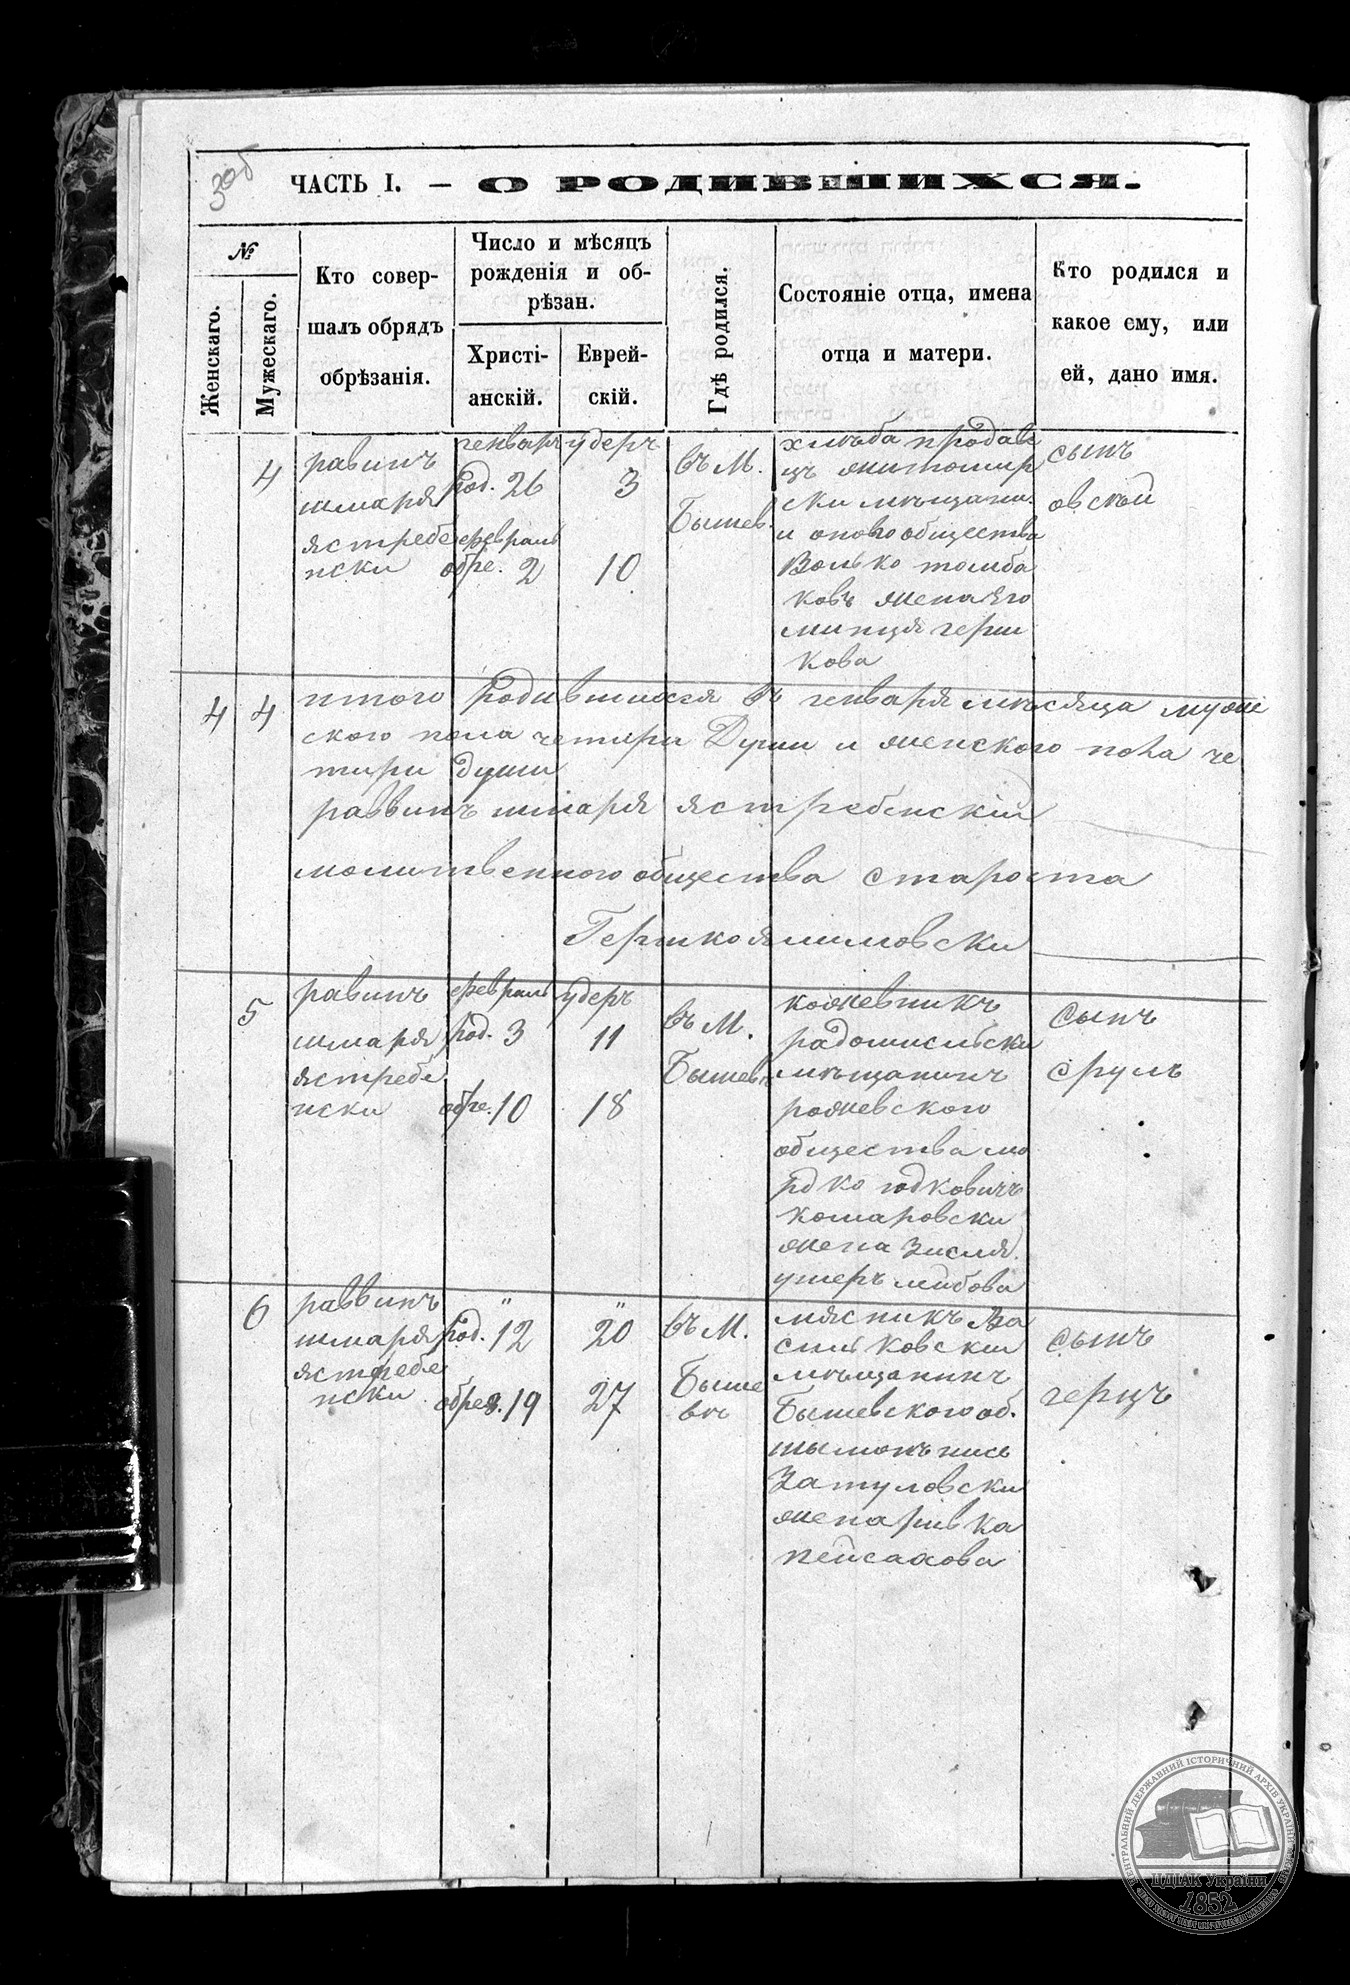 3об
ЧАСТЬ I. — О РОДИВШИХСЯ.
№
Женскаго.
Мужескаго.
Кто совер-
шалъ обрядъ
обрѣзанія.
Число и мѣсяцъ
рожденія и об-
рѣзан.
Христі-
анскій.
Еврей-
скій.
Гдѣ родился.
Состояніе отца, имена
отца и матери.
Кто родился и
какое ему, или
ей, дано имя.
4
равинъ
шмаря
ястребе
нски
генварь
род. 26
февраль
обре. 2
удеръ
3
10
въ М.
Бышев.
хлѣба продав
цъ житомир
ски мѣщани.
общества
Волько толба
ковъ жена его
минця герш
кова
сынъ
овсѣй
4 4
итого родившихся въ генваря мѣсяца муже
ского пола четыри Души и женского пола че
тыри души
раввинъ шмаря ястребенскій
молитвенного общества староста
Гершко ялимовски
5
равинъ
шмаря
ястребе
нски
февраль
род. 3
обре. 10
удеръ
11
18
въ М.
Бышев.
кожевникъ
радомисльски
мѣщанинъ
рожевского
общества мо
рдко юдковичъ
комаровски
жена Зисля
умеръ лейбова
сынъ
сруль
6
раввинъ
шмаря
ястребе
нски
"
род. 12
обрез. 19
"
20
27
въ М.
Быше
вѣ
мясникъ Ва
сильковски
мѣщанинъ
Бышевского об.
Затуловски
жена ривка
пейсахова
сынъ
герцъ
ЦЕНТРАЛЬНИЙ ДЕРЖАВНИЙ ІСТОРИЧНИЙ АРХІВ УКРАЇНИ
ЦДІАК України
1852